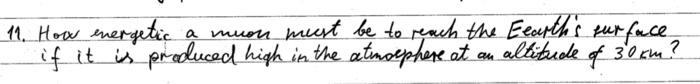 11. How energetic a muon must be to reach the Eearth's surface
if it is produced high in the atmosphere at an altitude of 30 km?